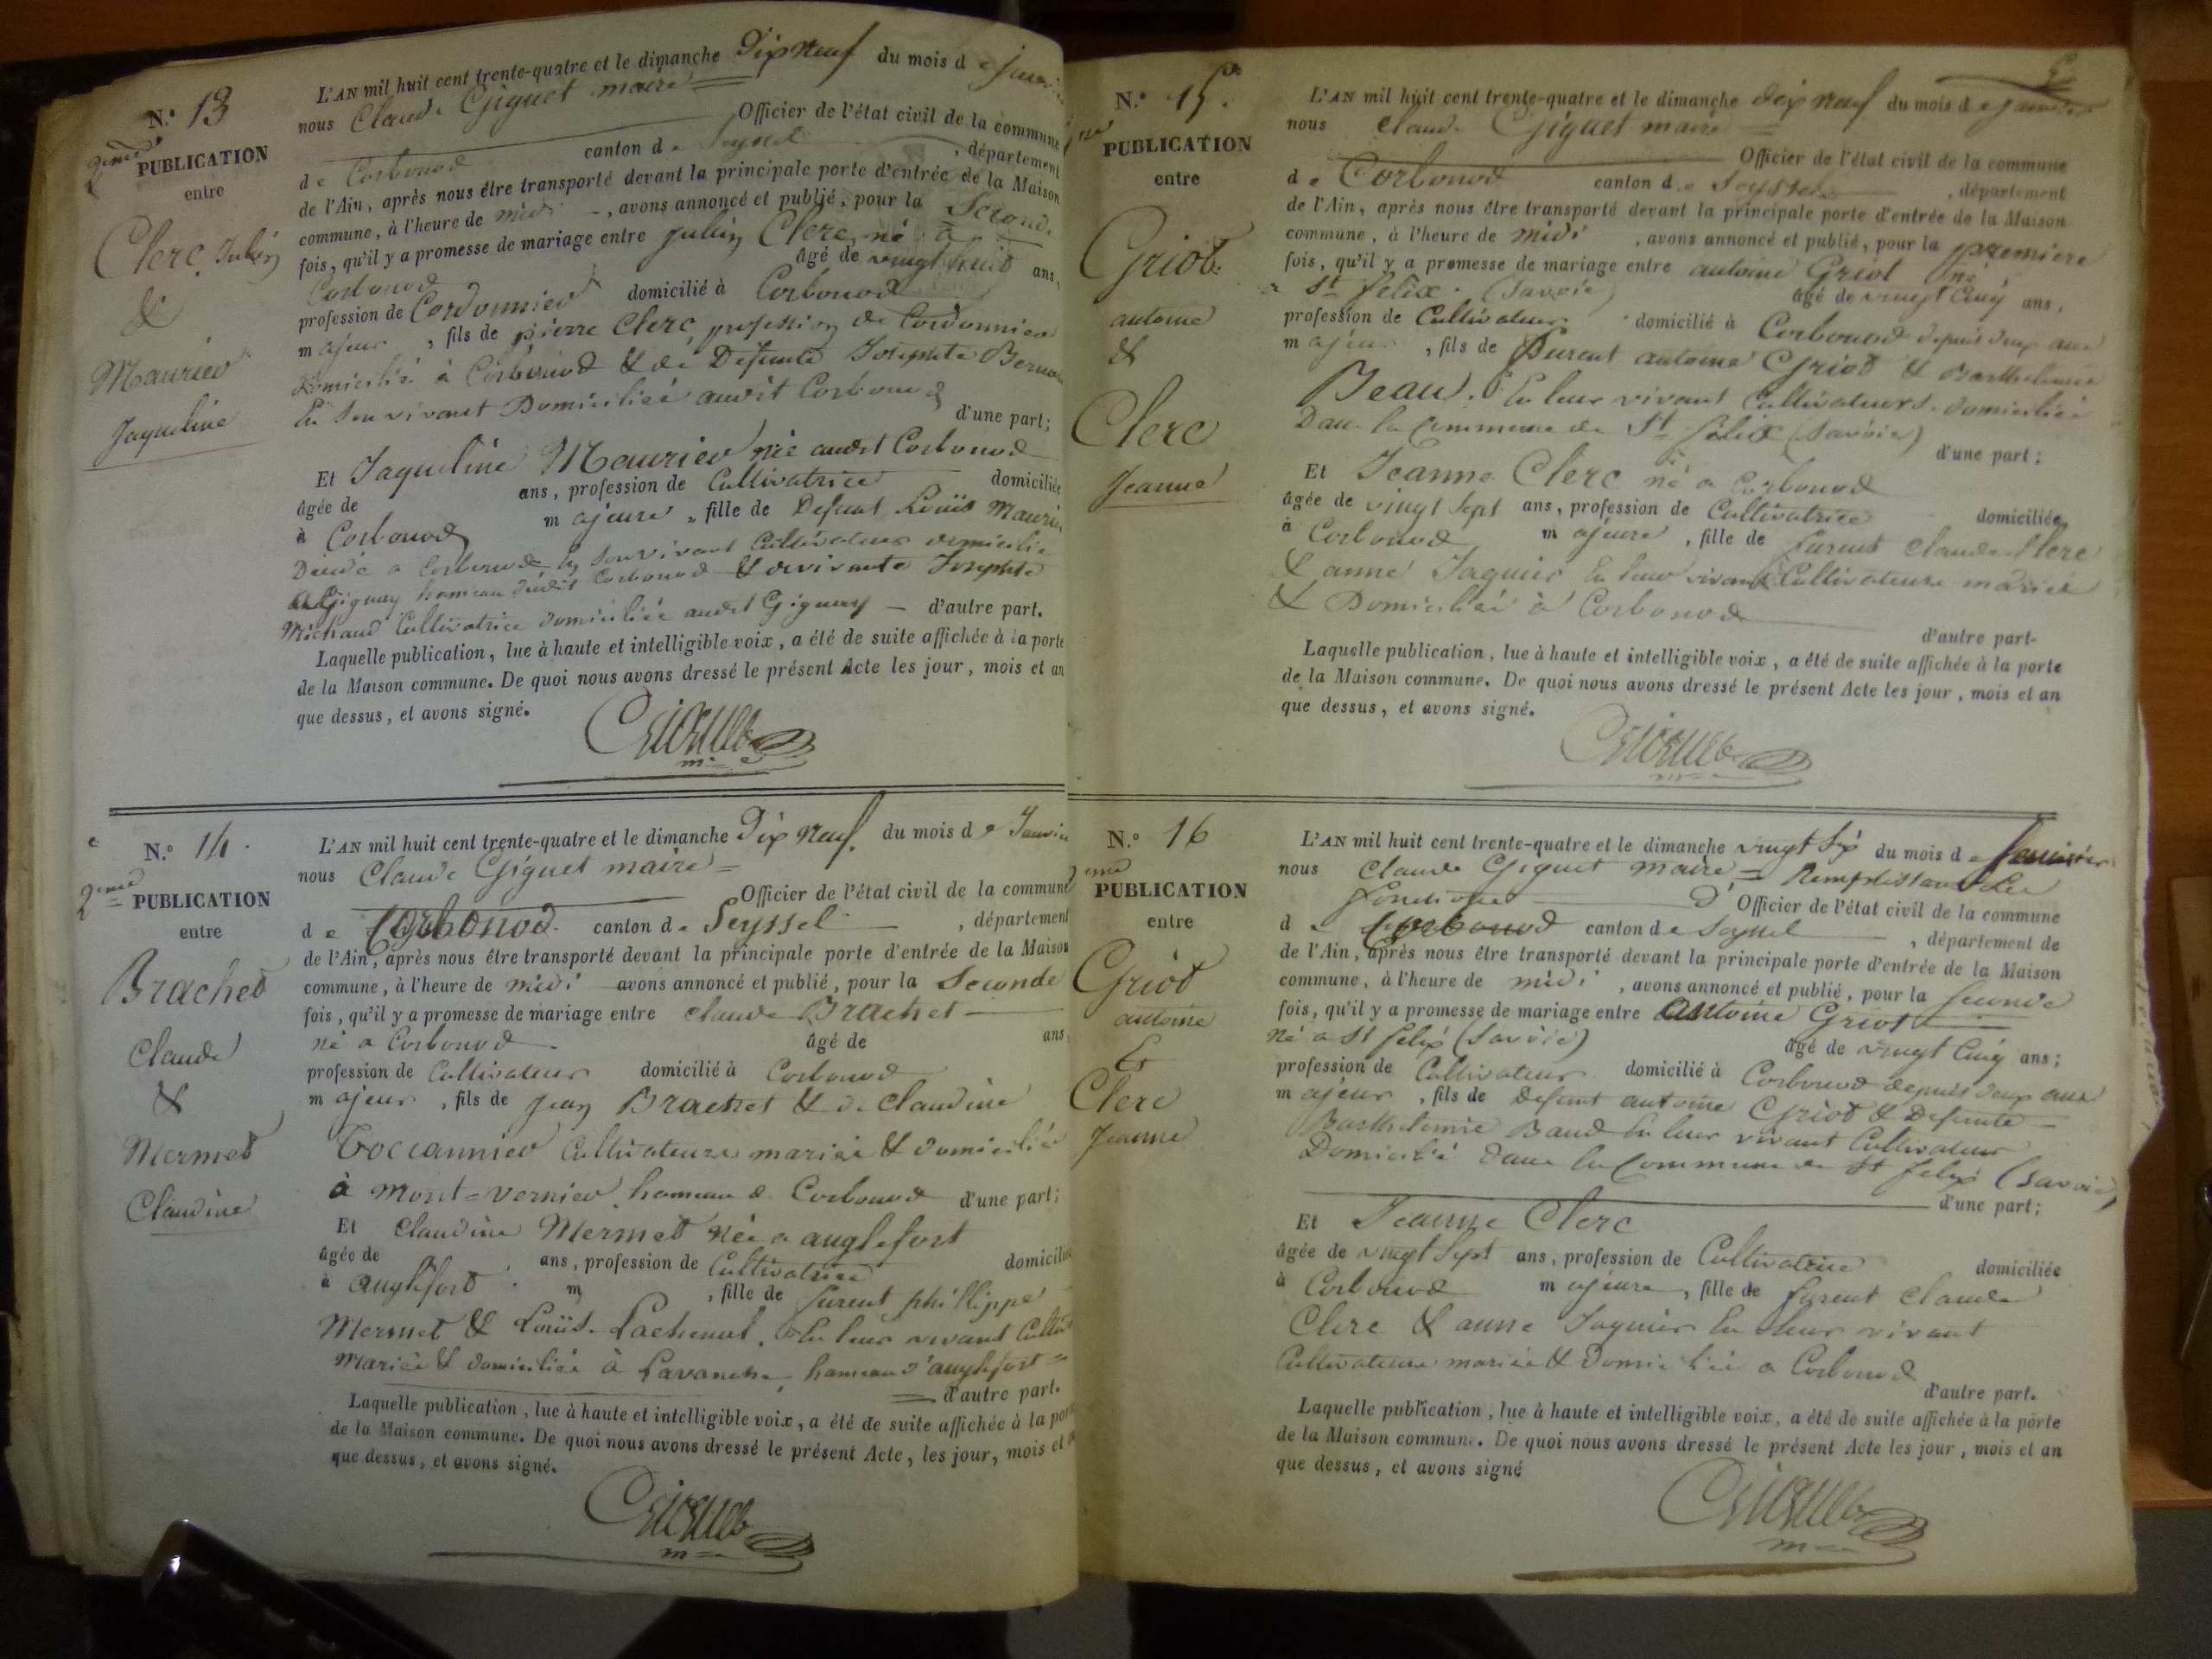 N.º 13
2eme PUBLICATION
entre
Clerc Julien
&
Maurier
Jaqueline
L'AN mil huit cent trente-quatre et le dimanche Dix neuf du mois de
nous Claude Giguet maire =
Officier de l'état civil de la commune
de Corbonod canton de Seyssel, département
de l'Ain, après nous être transporté devant la principale porte d'entrée de la Maison
commune, à l'heure de midi, avons annoncé et publié, pour la Seconde
fois, qu'il y a promesse de mariage entre Julien Clerc, né à
Corbonod âgé de vingt huit ans,
profession de Cordonnier domicilié à Corbonod
majeur, fils de pierre Clerc profession de Cordonnier
domicilié à Corbonod & de Defunte Josephte
En son vivant Domiciliée audit Corbonod
d'une part;
Et Jaqueline Maurier née audit Corbonod
âgée de ans, profession de Cultivatrice domiciliée
à Corbonod majeure, fille de Defunt Louis
Décédé a Corbonod En son vivant Cultivateur domicilié
a Gignay hameau dudit Corbonod & de vivante Josephte
Michaud Cultivatrice domiciliée audit Gignay — d'autre part.
Laquelle publication, lue à haute et intelligible voix, a été de suite affichée à la porte
de la Maison commune. De quoi nous avons dressé le présent Acte les jour, mois et an
que dessus, et avons signé.
Giguet
m

N.º 14.
2eme PUBLICATION
entre
Brachet
Claude
&
Mermet
Claudine
L'AN mil huit cent trente-quatre et le dimanche Dix neuf. du mois de
nous Claude Giguet maire =
Officier de l'état civil de la commune
de Corbonod. canton de Seyssel, département
de l'Ain, après nous être transporté devant la principale porte d'entrée de la Maison
commune, à l'heure de midi avons annoncé et publié, pour la Seconde
fois, qu'il y a promesse de mariage entre Claude Brachet
né a Corbonod. âgé de ans
profession de Cultivateur domicilié à Corbonod
majeur, fils de jean Brachet & de Claudine
Toccannier Cultivateurs mariés & domiciliés
à Mont=vernier hameau de Corbonod d'une part;
Et Claudine Mermet née a anglefort
âgée de ans, profession de Cultivatrice
à anglefort. m, fille de furent phillippe
Mermet & Louise Lachenal. En leur vivant
Mariés & domiciliés à Lavanche, hameau d'anglefort =
= d'autre part.
Laquelle publication, lue à haute et intelligible voix, a été de suite affichée à la
de la Maison commune. De quoi nous avons dressé le présent Acte, les jour, mois et
que dessus, et avons signé.
Giguet
m

N.º 15.
PUBLICATION
entre
Griot.
antoine
&
Clerc
Jeanne
L'AN mil huit cent trente-quatre et le dimanche dix neuf du mois de janvier
nous Claude Giguet maire =
Officier de l'état civil de la commune
de Corbonod canton de Seyssel, département
de l'Ain, après nous être transporté devant la principale porte d'entrée de la Maison
commune, à l'heure de midi, avons annoncé et publié, pour la premiere
fois, qu'il y a promesse de mariage entre antoine Griot né
a St felix. (Savoie) âgé de vingt Cinq ans,
profession de Cultivateur domicilié à Corbonod depuis deux ans
majeur, fils de furent antoine Griod & Barthelemie
Beaud. En leur vivant Cultivateurs domiciliés
Dans la Commune de St felix (Savoie)
d'une part;
Et Jeanne Clerc né a Corbonod
âgée de vingt Sept ans, profession de Cultivatrice domiciliée
à Corbonod majeure, fille de furent Claude Clerc
& anne Jaquier En leur vivant Cultivateurs mariés
& Domiciliés à Corbonod
d'autre part-
Laquelle publication, lue à haute et intelligible voix, a été de suite affichée à la porte
de la Maison commune. De quoi nous avons dressé le présent Acte les jour, mois et an
que dessus, et avons signé.
Giguet

N.º 16
eme PUBLICATION
entre
Griod
antoine
Et
Clerc
Jeanne
L'AN mil huit cent trente-quatre et le dimanche vingt Six du mois de janvier
nous Claude Giguet maire = Remplissant Les
fonctions d' Officier de l'état civil de la commune
de Corbonod canton de Seyssel, département de
de l'Ain, après nous être transporté devant la principale porte d'entrée de la Maison
commune, à l'heure de midi, avons annoncé et publié, pour la seconde
fois, qu'il y a promesse de mariage entre antoine Griot
Né a St felix (Savoie) âgé de vingt Cinq ans;
profession de Cultivateur domicilié à Corbonod depuis deux ans
majeur, fils de Defunt antoine Griod & Defunte
Barthelemie Baud En leur vivant Cultivateurs
Domiciliés dans la Commune de St felix (Savoie)
d'une part;
Et Jeanne Clerc
âgée de vingt Sept ans, profession de Cultivatrice domiciliée
à Corbonod majeure, fille de furent Claude
Clerc & anne Jaquier En leur vivant
Cultivateurs mariés & Domiciliés a Corbonod
d'autre part.
Laquelle publication, lue à haute et intelligible voix, a été de suite affichée à la porte
de la Maison commune. De quoi nous avons dressé le présent Acte les jour, mois et an
que dessus, et avons signé
Giguet
m